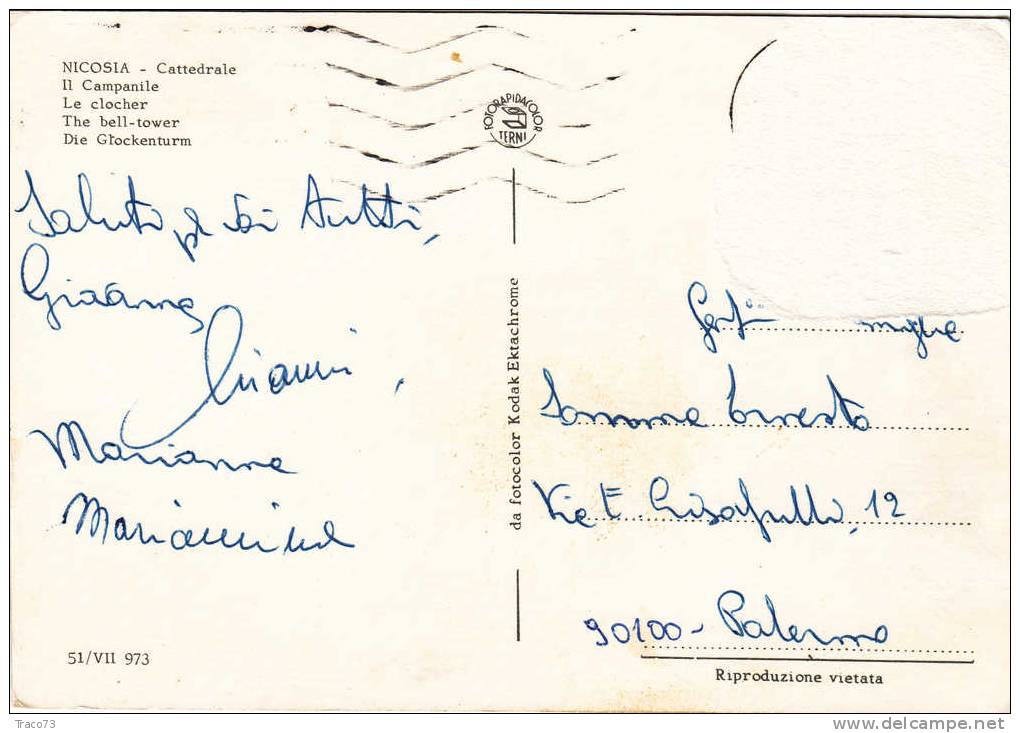 NICOSIA - Cattedrale
Il Campanile
Le clocher
The bell-tower
Die Glockenturm
FOTORAPIDACOLOR
TERNI
Saluti a voi tutti,
Gianna
Gianni,
Marianna
da fotocolor Kodak Ektachrome
Ernesto
Crisafulli, 12
90100 - Palermo
51/VII 973
Riproduzione vietata
Traco73
delcampe.net